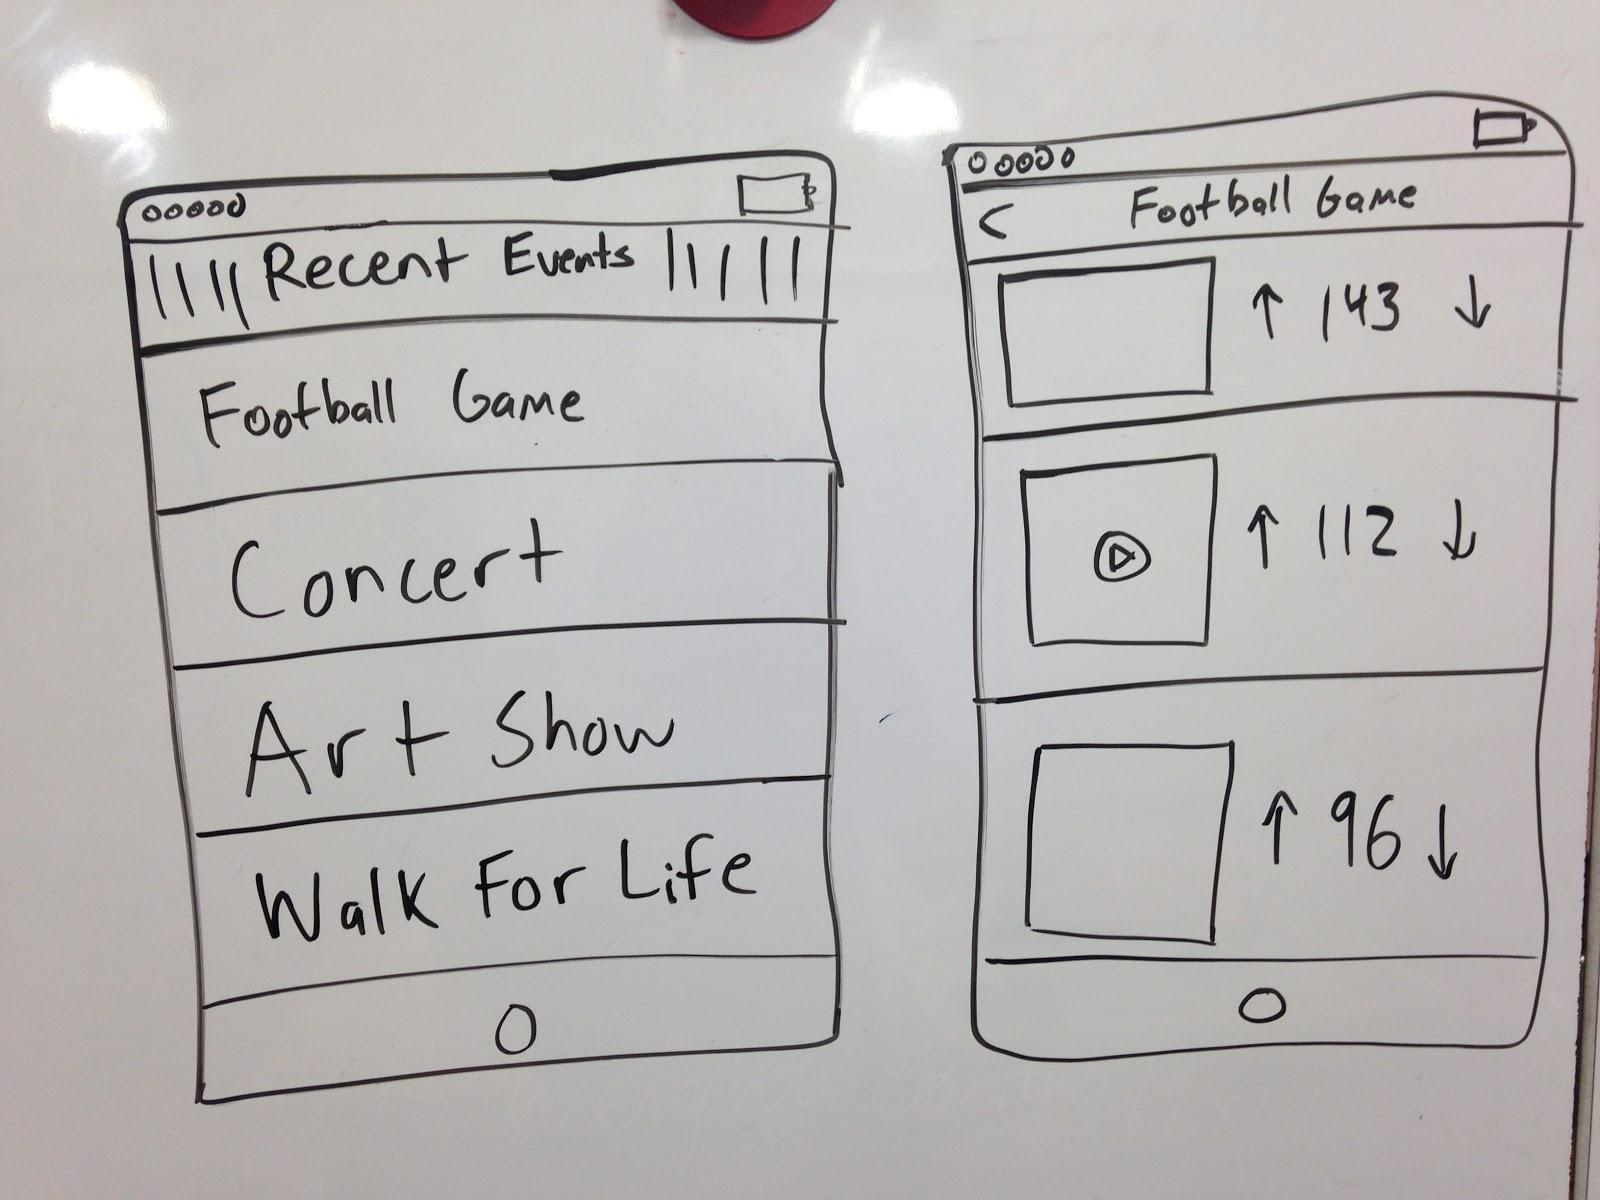 Recent Events
Football Game
Concert
Art Show
Walk For Life
< Football Game
↑ 143 ↓
↑ 112 ↓
↑ 96 ↓